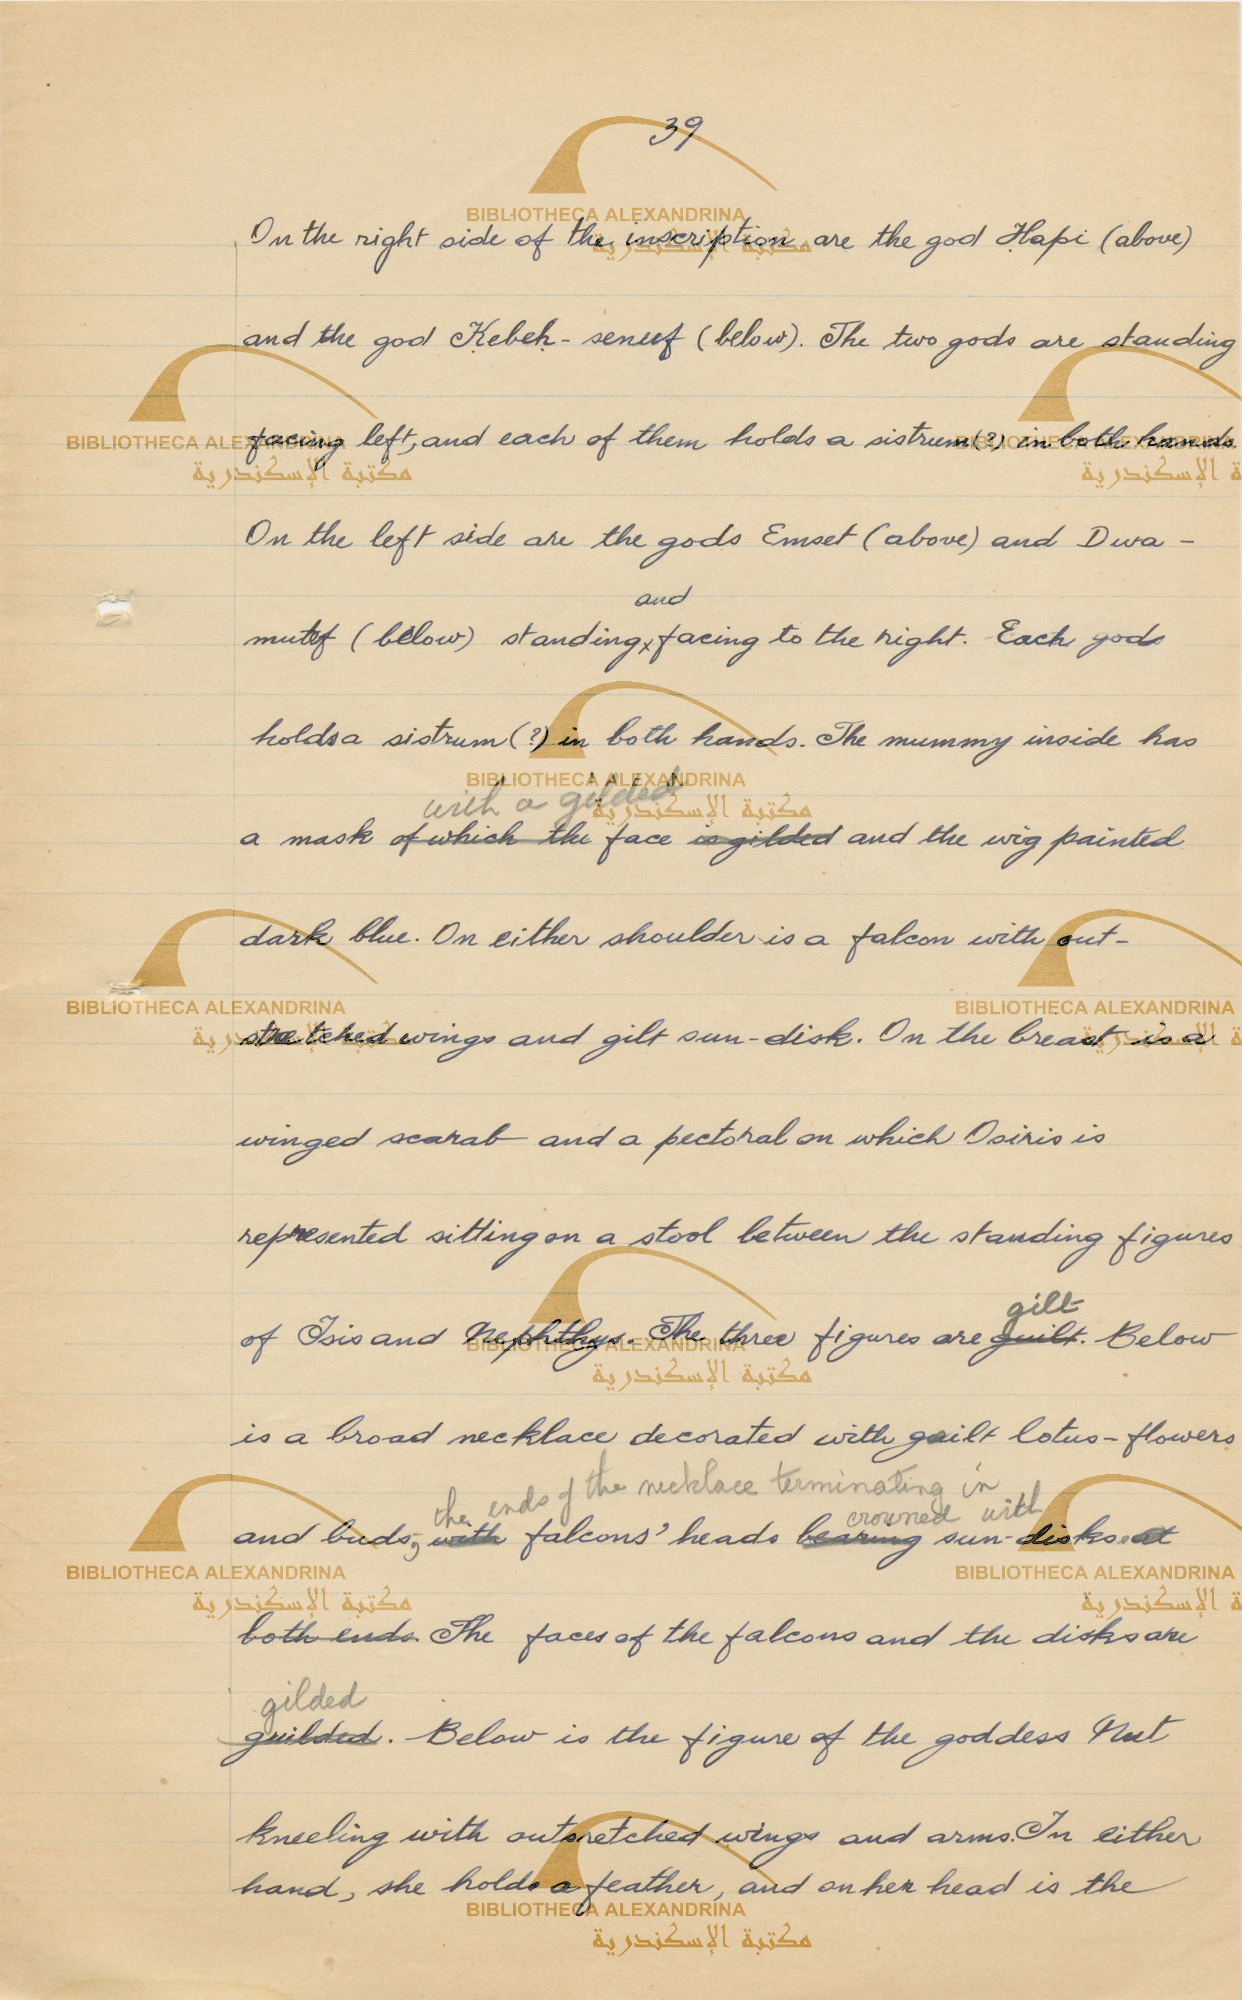 39
On the right side of the inscription are the god Ḥapi (above)
and the god Ḳebeḥ- senuf (below). The two gods are standing
facing left, and each of them holds a sistrum(?) in both hands
On the left side are the gods Emset (above) and Dwa -
and
mutef (below) standing, facing to the right. Each gods
holds a sistrum (?) in both hands. The mummy inside has
with a gilded
a mask of which the face is gilded and the wig painted
dark blue. On either shoulder is a falcon with out-
stretched wings and gilt sun-disk. On the breast is a
winged scarab and a pectoral on which Osiris is
represented sitting on a stool between the standing figures
gilt
of Isis and Nephthys. The three figures are guilt. Below
is a broad necklace decorated with guilt lotus-flowers
the ends of the necklace terminating in
crowned with
and buds, with falcons' heads bearing sun-disks at
both ends. The faces of the falcons and the disks are
gilded
guilded. Below is the figure of the goddess Nut
kneeling with outsretched wings and arms. In either
hand, she holds a feather, and on her head is the
BIBLIOTHECA ALEXANDRINA
مكتبة الإسكندرية